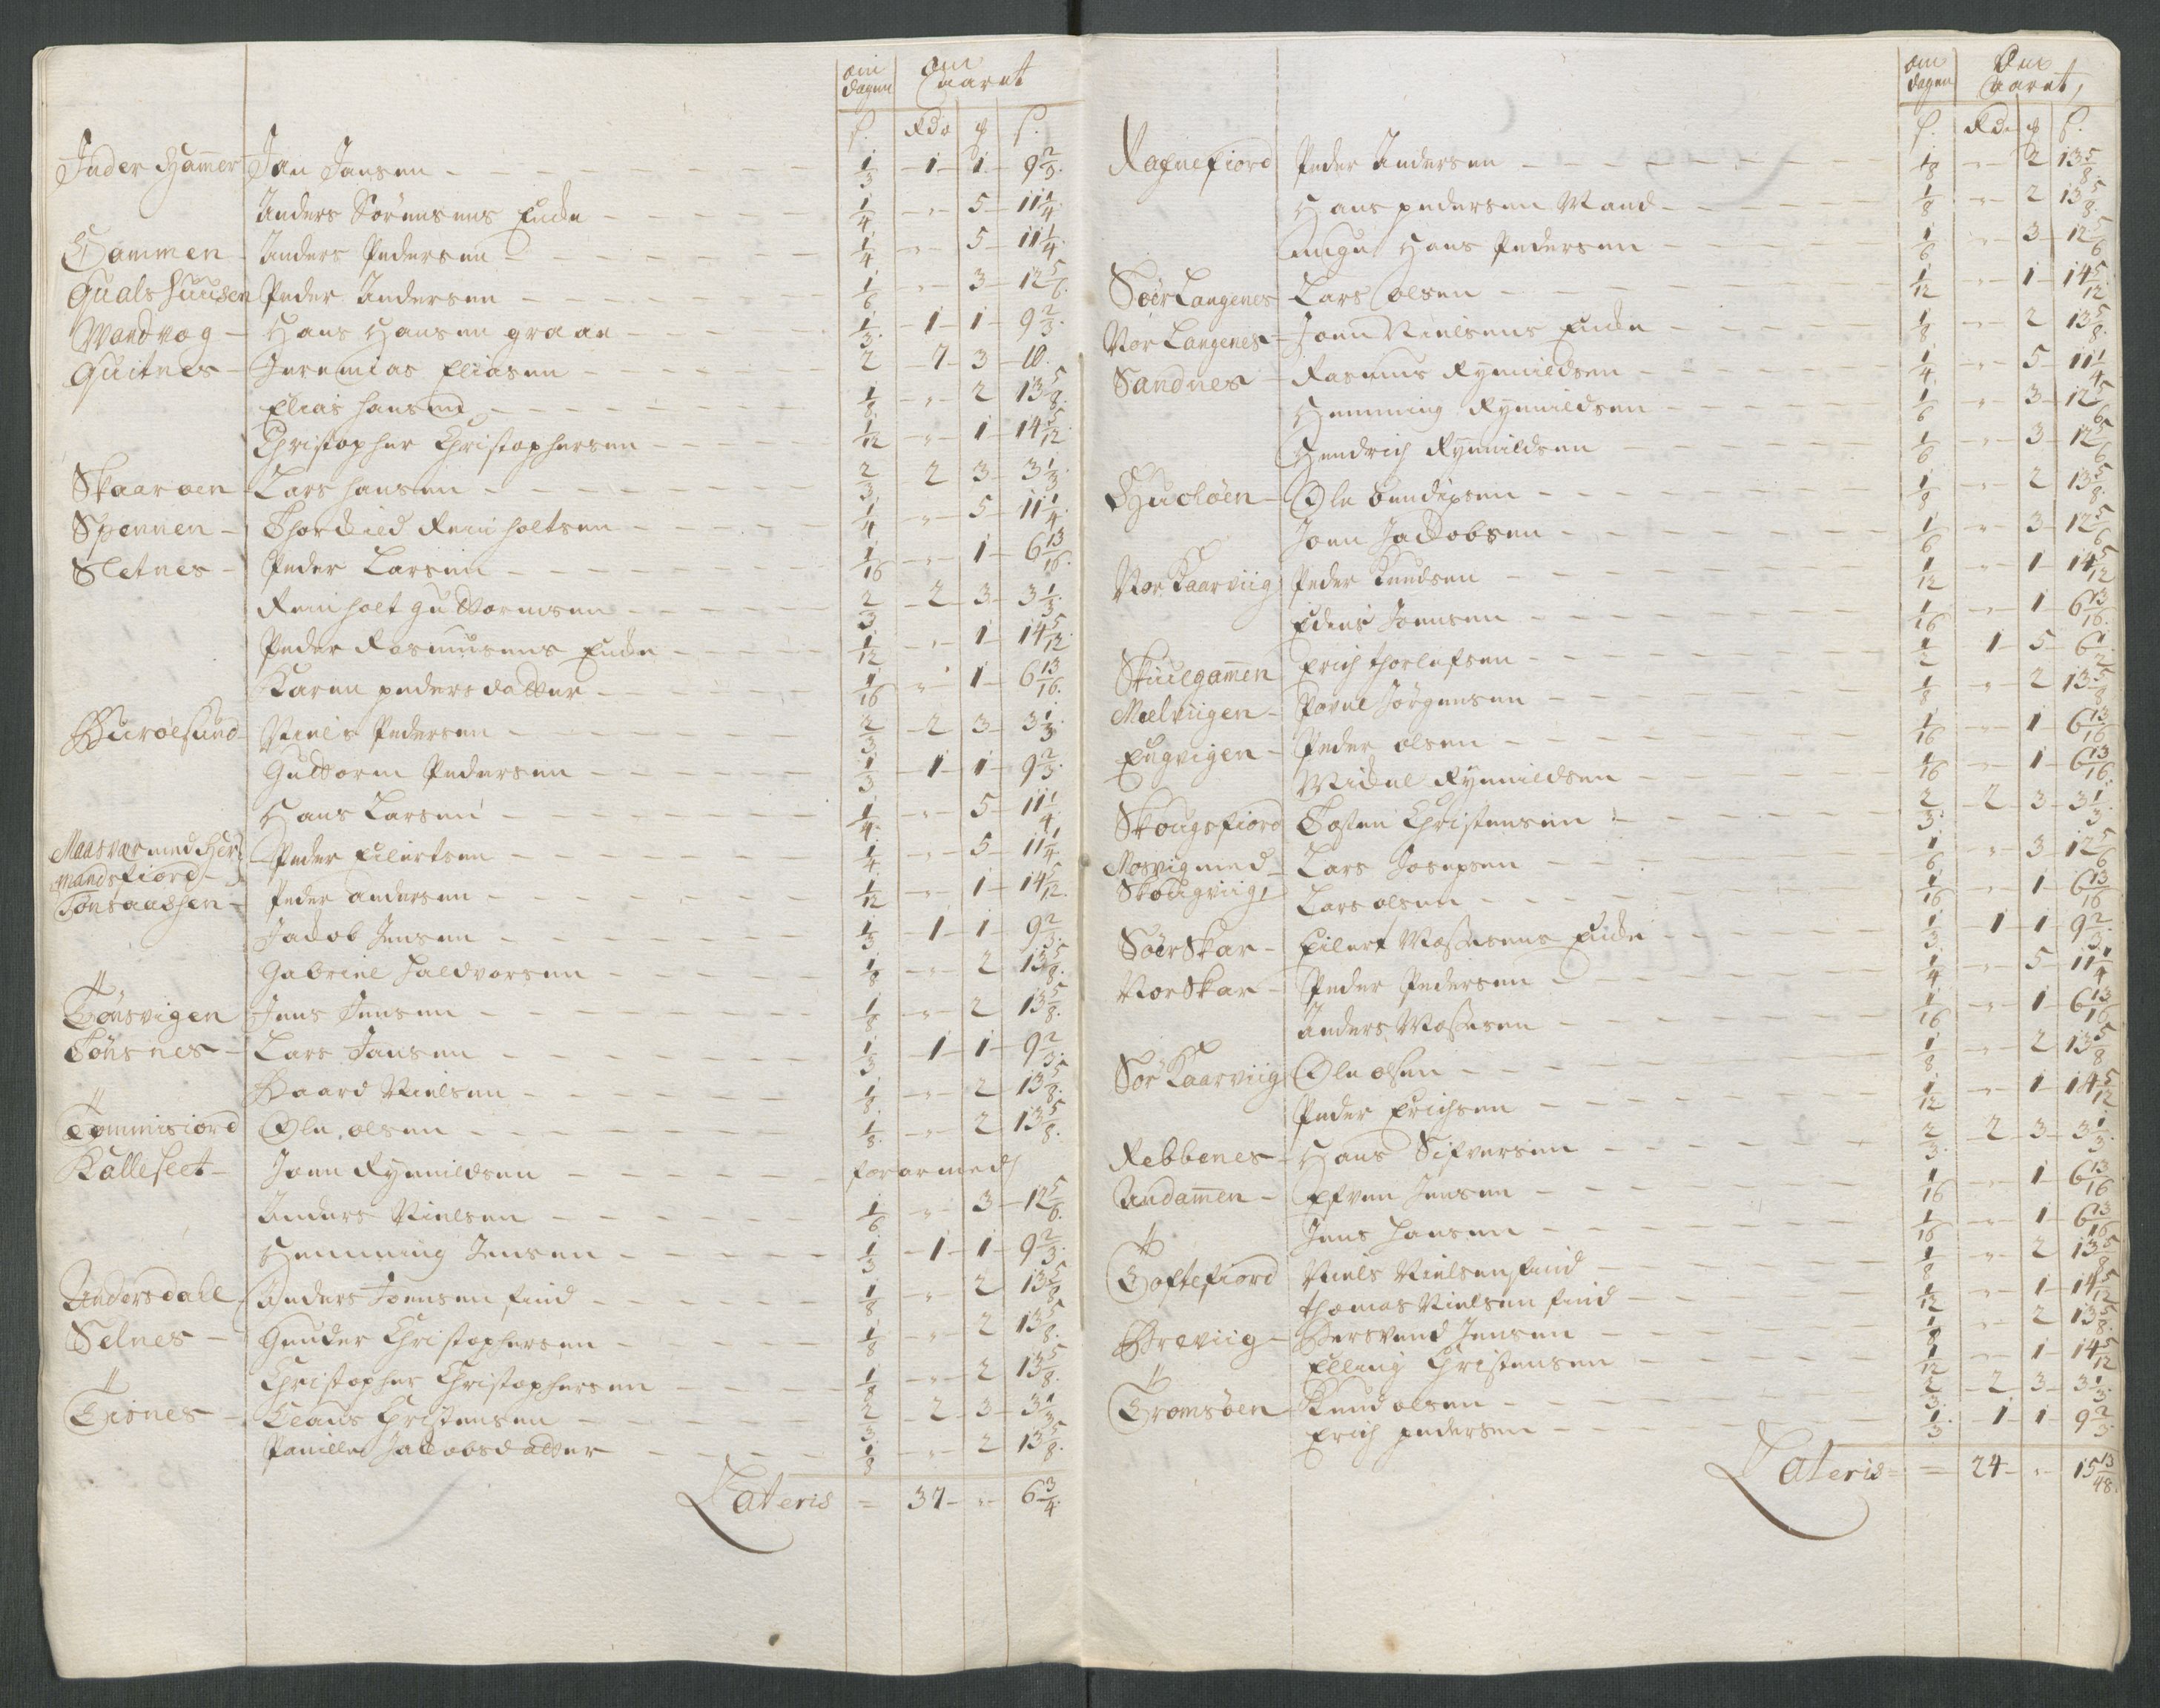 om dagen om aaret
ß. Rdr ꝑ ß.
Inder Hammer Jan Jansen - 1/3 - 1 - 1 - 9 2/3.
Anders Sörensens Encke - 1/4 - " - 5 - 11 1/4.
Hammen - Anders Pedersen - 1/4 " - 5 - 11 1/4.
Qualshuusen Peder Andersen - 1/6 - " - 3 - 12 5/6.
Wandvog - Hans Hansen graae - 1/3. - 1 - 1 - 9 2/3.
Quitnes - Jeremias Eliasen - 2 - 7 - 3 - 10.
Elias hansen - 1/8 - " - 2 13 5/8.
Christopher Christophersen - 1/12 - " - 1 - 14 5/12.
Skaaroen - Lars hansen - 2/3 - 2 - 3 - 3 1/3.
Spennen - Thorkild Reinholtsen - 1/4 - " - 5 - 11 1/4.
Sletnes - Peder Larsen - 1/16 - " - 1 - 6 13/16.
Reinholt Guttormsen - 2/3 - 2 - 3 - 3 1/3.
Peder Rasmusens Encke - 1/12 - " - 1 - 14 5/12.
Karen pedersdatter - 1/16 " - 1 - 6 13/16.
Buröesund Niels Pedersen - 2/3 - 2 - 3 - 3 1/3.
Guttorm Pedersen - 1/3 - 1 - 1 - 9 2/3.
Hans Larsen - 1/4. - " - 5 - 11 1/4.
Maasvær med Her-
mandsfiord - Peder Eilertsen - 1/4. - " - 5 - 11 1/4
Tonsaasen - Peder andersen - 1/12 - " - 1 - 14 5/12.
Jacob Jensen - 1/3 - 1 - 1 - 9 2/3.
Gabriel Haldvorsen - 1/8 - " - 2 13 5/8.
Tönsvigen Jens Jensen - 1/8 - " - 2 13 5/8.
Tönsnes - Lars Jansen - 1/3 - 1 - 1 - 9 2/3.
Baard Nielsen - 1/8. - " - 2 - 13 5/8.
Tommisiord Ole olsen - 1/8. - " - 2 - 13 5/8.
Kalleslet - Joen Rynnildsen - forarmed
Anders Nielsen - 1/6 - " - 3 - 12 5/6.
Hemming Jensen - 1/3 - 1 - 1 - 9 2/3.
Andersdahl Anders Joensen find - 1/8 - " 2 13 5/8
Selnes - Gunder Christophersen - 1/8 - " - 2 13 5/8.
Christopher Christophersen - 1/8 - " - 2 13 5/8.
Tisnes - Claus Christensen - 2/3. - 2 - 3 - 3 1/3
Pernille Jacobsdatter - 1/8 - " - 2 13 5/8.
Lateris = 37 - " - 6 3/4.
om dagen Om aaret,
ß. Rdr ꝑ ß.
Rafnefiord Peder Andersen - 1/8 " - 2 13 5/8.
Hans pedersen Mand - 1/8 " - 2 13 5/8.
unge Hans Pedersen - 1/6 " - 3 - 12 5/6
Söer Langenes - Lars olsen - 1/12 " - 1 - 14 5/12
Nor Langenes - Joen Nielsens Encke - 1/8 " - 2 13 5/8.
Sandnes - Rasmus Rynnildsen - 1/4 " - 5 - 11 1/4
Hemming Rynnildsen - 1/6 " - 3 - 12 5/6
Hendrich Rynnildsen - 1/6 " - 3 - 12 5/6
Ole bendixsen - 1/8 " - 2 13 5/8.
Joen Jacobsen - 1/6 " - 3 - 12 5/6
Nor Kaarviig Peder Knudsen - 1/12 " - 1 - 14 5/12
Joensen - 1/16 " - 1 - 6 13/16.
Skuulgamen Erich thorlefsen - 1/2 1 - 5 - 6 1/2
Meelviigen - Povel Jörgensen - 1/8 " - 2 13 5/8
Engvigen - Peder olsen - 1/16 " - 1 - 6 13/16
Mickel Rynnildsen - 1/16 " - 1 - 6 13/16.
Skougsfiord Tosten Christensen - 2/3. - 2 - 3 - 3 1/3.
Mosvig med - Lars Josepsen - 1/6 " - 3 - 12 5/6
Skougviig, Lars olsen - 1/16 " - 1 - 6 13/16
Söer Skar - Eilert Massesens Encke - 1/3 - 1 - 1 - 9 2/3.
Nor Skar - Peder Pedersen - 1/4 " - 5 - 11 1/4
Anders Massesen - 1/16 " - 1 - 6 13/16
Sör Kaarviig Ole olsen - 1/8 " - 2 13 5/8
Peder Erichsen - 1/12 " - 1 - 14 5/12
Rebbenes - Hans Sifversen - 2/3. - 2 - 3 - 3 1/3.
Andamen - Efven Jensen - 1/16 " - 1 - 6 13/16
Jens hansen - 1/16 " - 1 - 6 13/16
Toftefiord Niels Nielsen find - 1/8 " - 2 13 5/8
thomas Nielsen find - 1/12 " - 1 - 14 5/12
Breviig - Bersvend Jensen - 1/8 " - 2 13 5/8.
Elling Christensen - 1/12 " - 1 - 14 5/12
Tromsöen - Knud olsen - 2/3. - 2 - 3 - 3 1/3.
Erich pedersen - 1/3 - 1 - 1 - 9 2/3.
Lateris = 24 - " - 15 13/48.